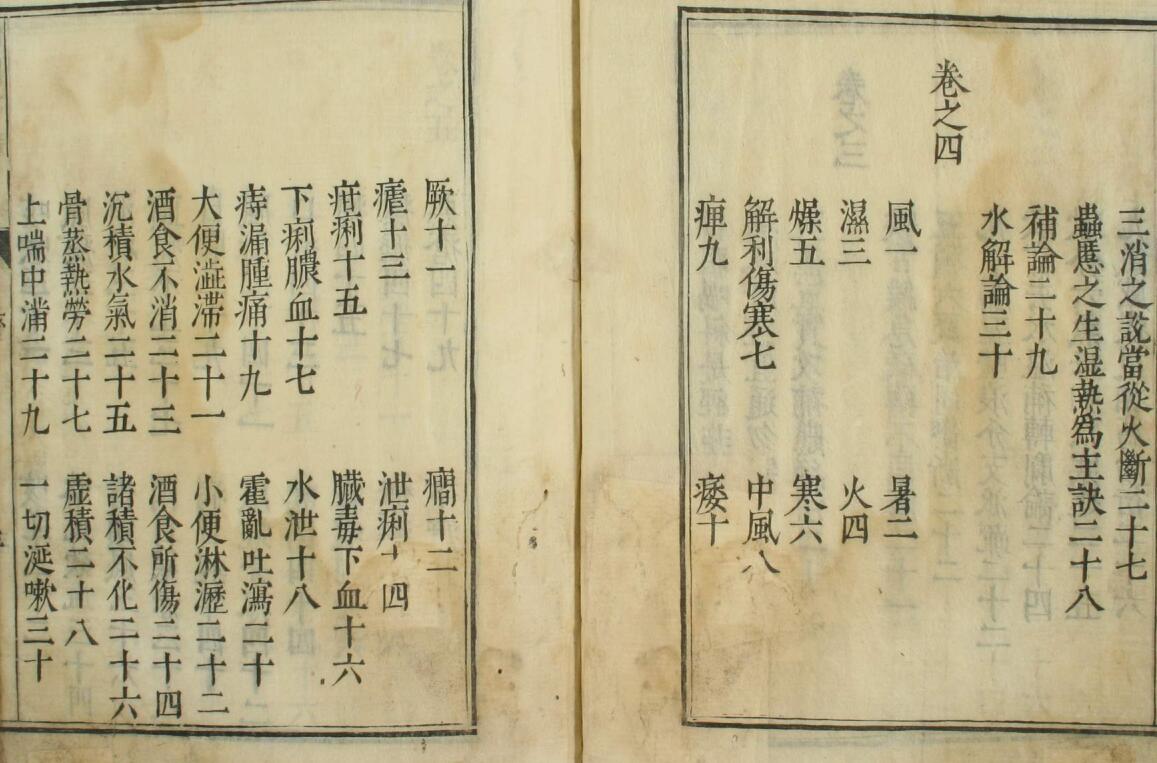 三消之説當從火斷二十七
蟲䘌之生湿熱爲主訣二十八
補論二十九
水解論三十
卷之四
風一 暑二
濕三 火四
燥五 寒六
解利傷寒七 中風八
痺九 痿十
厥十一 癇十二
瘧十三 泄痢十四
疳痢十五 臟毒下血十六
下痢膿血十七 水泄十八
痔漏腫痛十九 霍亂吐瀉二十
大便澁滯二十一 小便淋瀝二十二
酒食不消二十三 酒食所傷二十四
沉積水氣二十五 諸積不化二十六
骨蒸熱勞二十七 虚積二十八
上喘中滿二十九 一切涎嗽三十